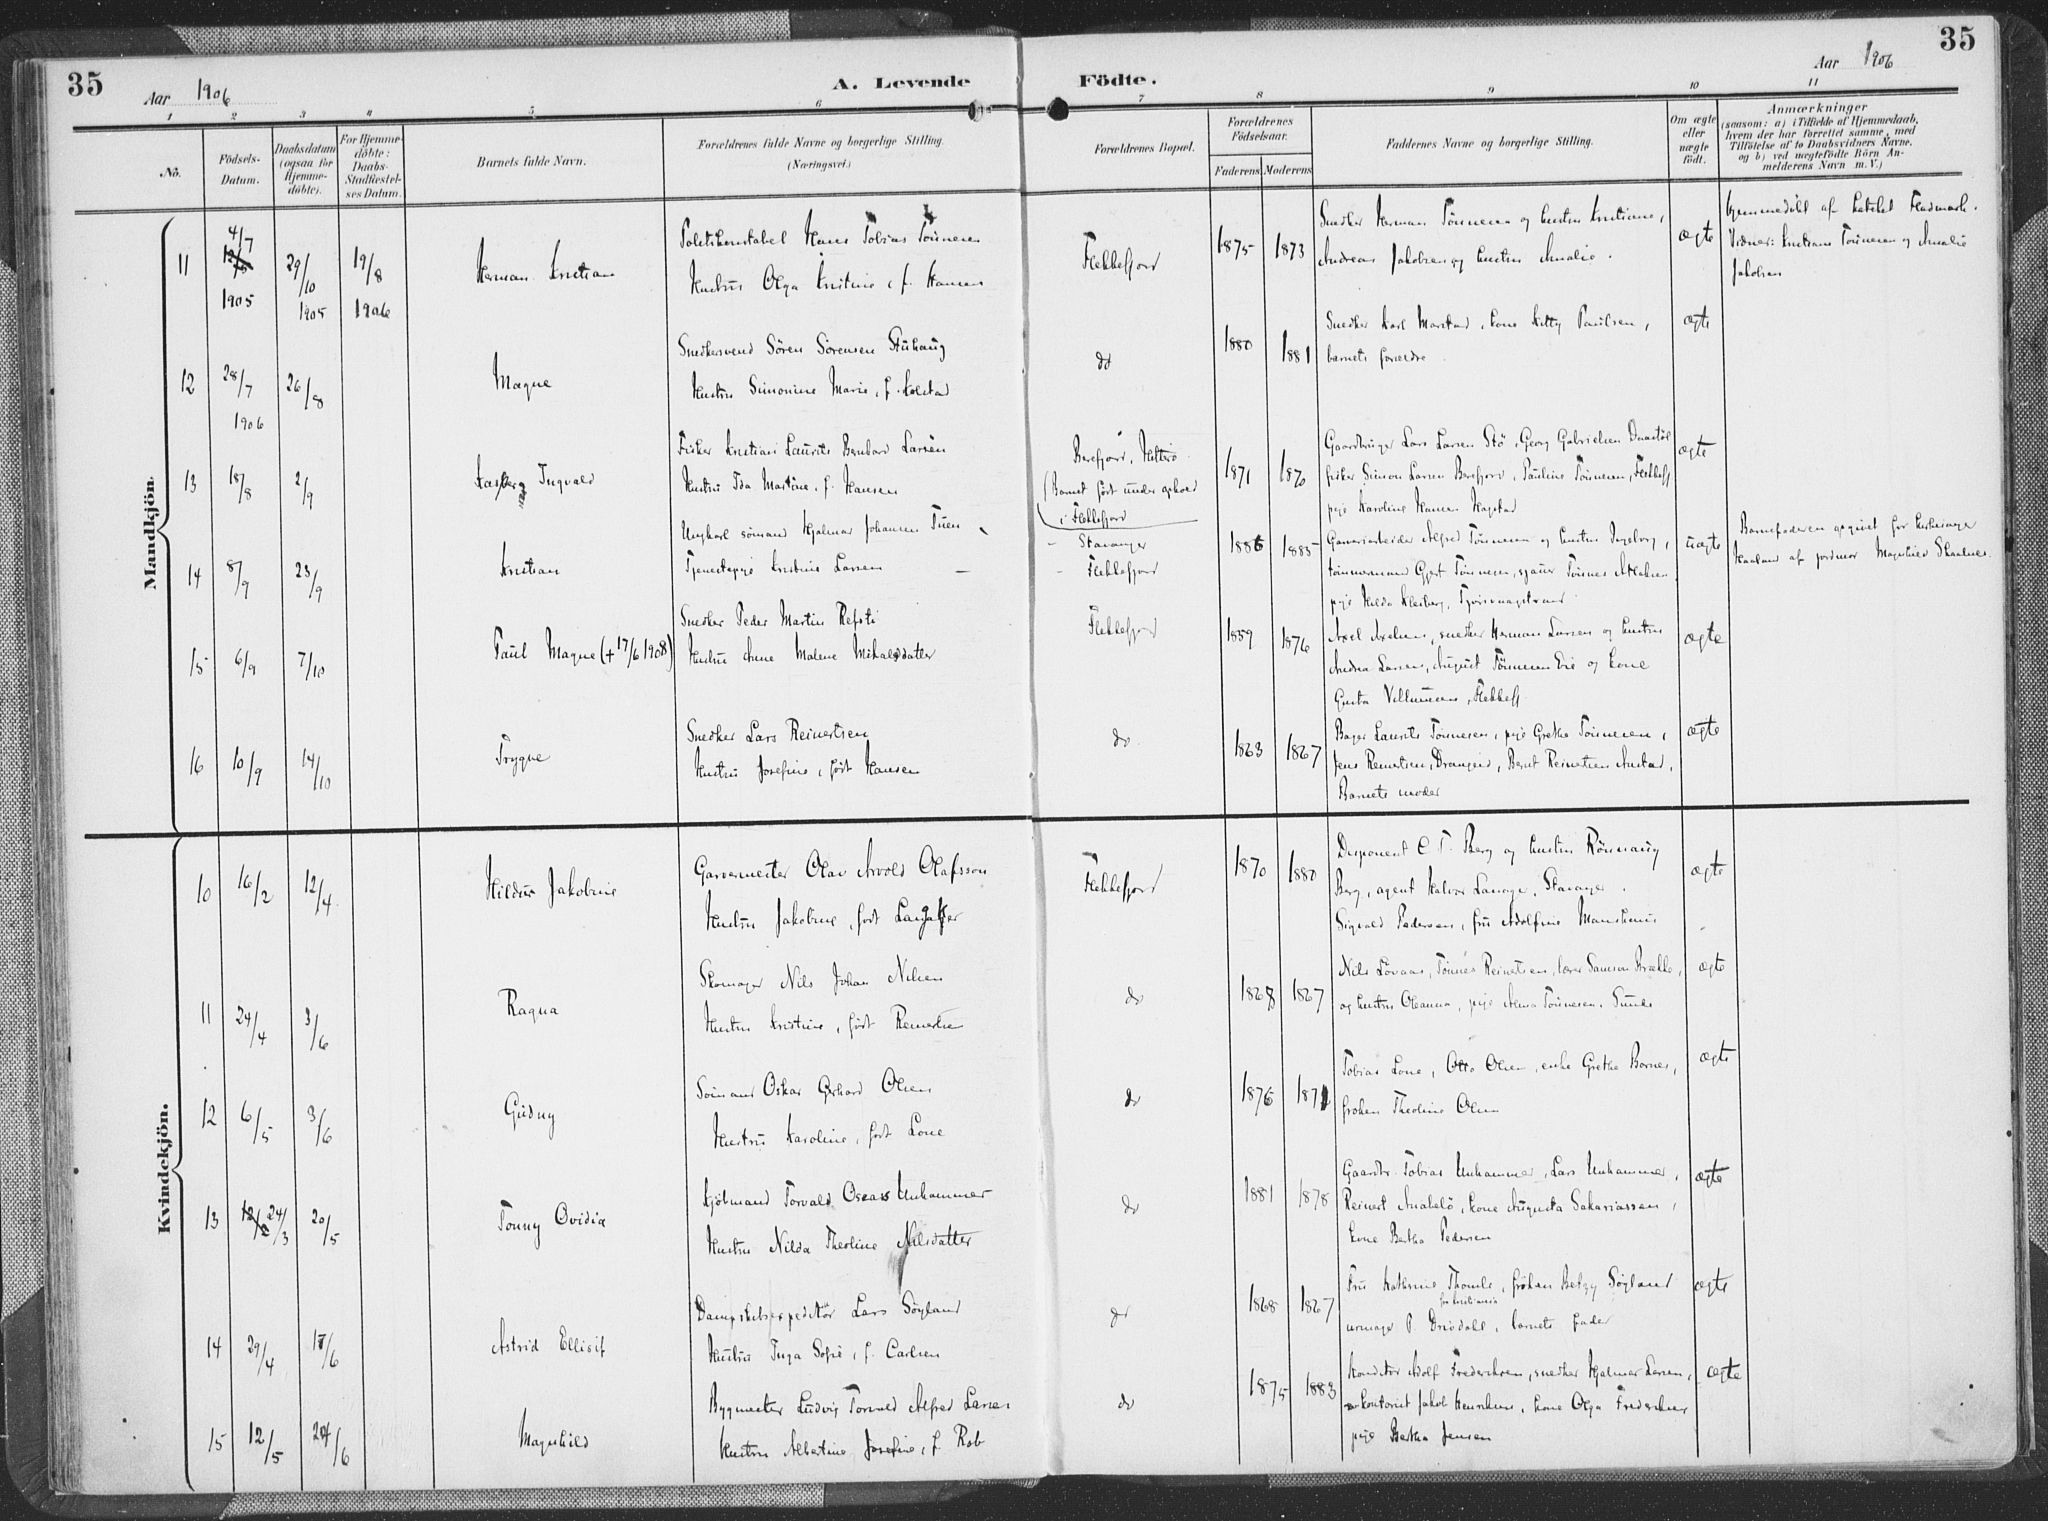 35
Aar 1906
A. Levende
Födte.
Aar 1906
35
1 2 3 4 5 6 7 8 9 10 11
Nö.
Födsels-Datum.
Daabsdatum (ogsaa for Hjemme-döbte).
For Hjemme-döbte: Daabs-Stadfæstel-ses Datum.
Barnets fulde Navn.
Forældrenes fulde Navne og borgerlige Stilling.
(Næringsvei.)
Forældrenes Bopæl.
Forældrenes Födselsaar.
Faderens Moderens
Faddernes Navne og borgerlige Stilling.
Om ægte eller uægte födt.
Anmærkninger
(saasom: a) i Tilfælde af Hjemmedaab, hvem der har forrettet samme, med Tilföielse af to Daabsvidners Navne, og b) ved uegtefödte Börn An-melderens Navn m. V.)
Mandkjön.
11 4/7 1905 29/10 1905 19/8 1906 Herman Kristian
Politikonstabel Hans Tobias Tönnesen
Hustru Olga Kristine, f. Hansen
Flekkefjord 1875 1873
Snedker Herman Tönnesen og hustru Kristiane,
Andreas Jakobsen og hustru Amalie.
ægte
Hjemmedöbt af kateket Fladmark.
Vidner: Kristiane Tönnesen og Amalie
Jakobsen
12 28/7 1906 26/8 Magne
Snedkersvend Sören Sörensen Stuhaug
Hustru Simonine Marie, f. Kolstad
do 1880 1881
Snedker Karl Marstad, kone Kitty Paulsen,
barnets forældre.
ægte
13 18/8 2/9 Ingvald
Fisker Kristian Laurits Bernhard Larsen
Hustru Ida Martine, f. Hansen
Berefjord, Hitterö
(Barnet födt under ophold
i Flekkefjord
1871 1870
Gaardbruger Lars Larsen Stö, Georg Gabrielsen
fisker Simon Larsen Berefjord, Pauline Tönnesen, Flekkefj
pige Karoline Hansen Hagstad
ægte
14 8/9 23/9 Kristian
Ungkarl sömand Hjalmar Johansen Tuen
Tjenestepige Kristine Larsen
- Stavanger
- Flekkefjord
1886 1885
Garveriarbeider Alfred Tönnesen og hustru Ingeborg,
tömmermand Gjert Tönnesen, sjauer Tönnes Atlaksen
pige Hilda Kleiberg,
uægte
Barnefaderen opgivet for
Haaland af jordmor Magnhild
15 6/9 7/10 Paul Magne (+ 17/6 1908)
Snedker Peder Martin Refsti
Hustru Anne Malene Mikalsdatter
Flekkefjord 1859 1876
Axel Axelsen, snedker Herman Larsen og hustru
Andrea Larsen, August Tönnesen Eie og kone
Gusta Villumsen, Flekkefj.
ægte
16 10/9 14/10 Trygve
Snedker Lars Reinertsen
Hustru Josefine, född Hansen
do. 1863 1867
Bager Laurits Tönnesen, pige Grethe Tönnesen,
Jens Reinertsen, Drangeid, Bernt Reinertsen Austad,
Barnets moder
ægte
Kvindekjön.
10 16/2 12/4 Hildur Jakobine
Garvermester Olav Arvold Olafsson
Hustru Jakobine, född Langaker
Flekkefjord 1870 1880
Disponent C. T. Berg og hustru Rönnaug
Berg, agent Halvor Lanage, Stavanger.
Sigvald Pedersen, fru Adolfine
ægte
11 24/4 3/6 Ragna
Skomager Nils Johan Nilsen
Hustru Kristine, född Reinertsen
do 1868 1867
Nils Lövaas, Tönnes Reinertsen, lærer Samson Brække,
og hustru Oleanna, pige Alma Tönnesen, Sunde
ægte
12 6/5 3/6 Gudny
Sömand Oskar Gerhard Olsen
Hustru Karoline, född Lone
do 1876 1871
Tobias Lone, Otto Olsen, enke Grethe Barnes,
fröken Theoline Olsen
ægte
13 24/3 20/5 Tonny Ovidia
Kjöbmand Torvald Oscar Unhammer
Hustru Nilda Theoline Nilsdatter
do 1881 1878
Gaardbr. Tobias Unhammer, Lars Unhammer,
Reinert Anabelö, kone Augusta Sakariassen,
kone Bertha Pedersen
ægte
14 29/4 17/6 Astrid Ellisif
Dampskibsexpeditör Lars Söyland
Hustru Inga Sofie, f. Carlsen
do 1868 1867
Fru Kathrine Thomle, fröken Betzy Söyland
fra Kristiania
urmager P. Drivdahl, barnets fader
ægte
15 12/5 24/6 Magnhild
Bygmester Ludvig Torvald Alfred Larsen
Hustru Albertine Josefine, f. Rob
do 1875 1883
Konditor Adolf Frederiksen, snedker Hjalmar Larsen,
kontorist Jakob Henriksen, kone Olga Frederiksen
pige Bertha Jensen
ægte